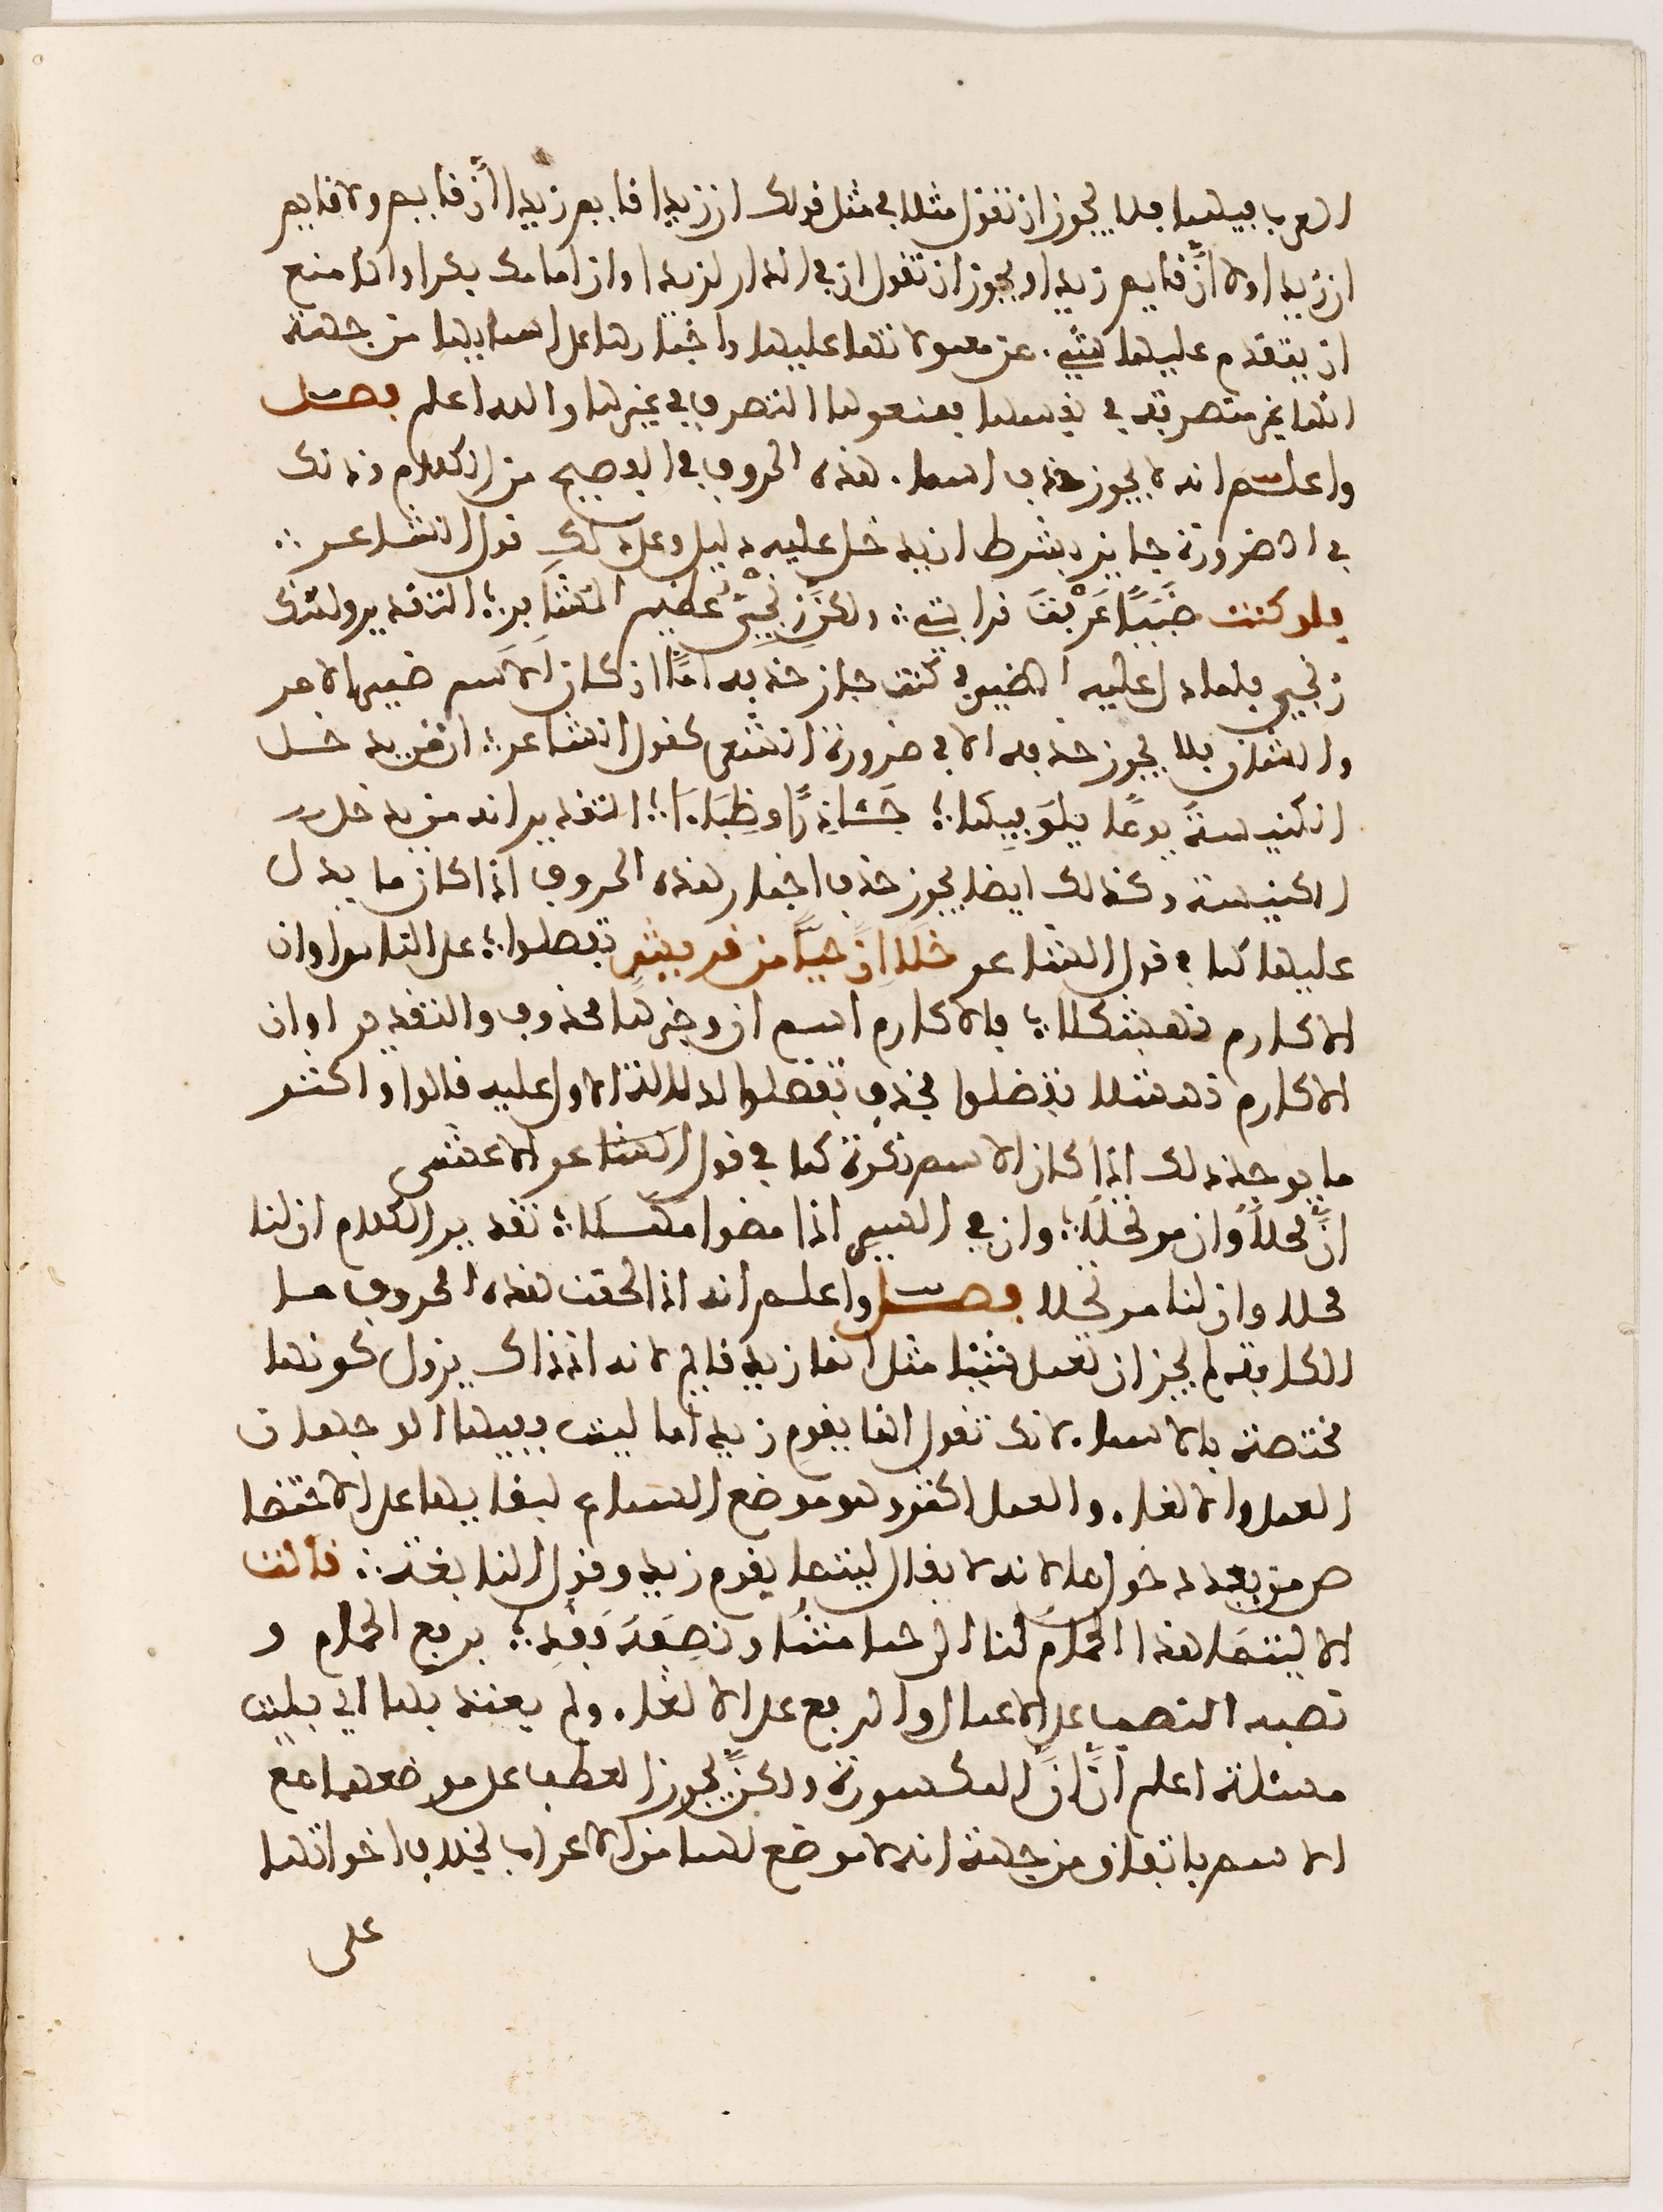 العرب فيها فلا يجوز ان تقول مثلا في مثل قولك ان زيدا قايم زيدا اِنَّ قايم ولا قايم
ان زيدا ولا اِنَّ قايم زيدا ويجوز ان تقول ان في الدار لزيدا وان امامك بكرا وانما منع
ان يتقدم عليها شيء من معمولاتها عليها واخبارها على اسمايها من جهة
انها غير متصرفة في نفسها فمنعوها التصرف في غيرها والله اعلم فصل
واعلم انه لا يجوز حذف اسماء هذه الحروف في الفصيح من الكلام وذلك
في الضرورة جايز بشرط ان يدل عليه دليل وعلى ذلك قول الشاعر ∴
فلو كنت ضَبِّيًّا عَرَفْتَ قرابتي ∴ ولكنَّ زِنْجِيٌّ عظيم المشَافر ∴ التقدير ولكنك
زنجي فلما دل عليه الضمير في كنت جاز حذفه امّا ان كان الاسم ضمير الامر
والشان فلا يجوز حذفه الا في ضرورة الشعر كقول الشاعر ∴ ان من يدخل
الكنيسة يومًا يلقَ فيها ∴ جَـئَاذِرًا وظِبَاءَا ∴ التقدير انه من يدخل
الكنيسة وكذلك ايضا يجوز حذف اخبار هذه الحروف اذا كان ما يدل
عليها كما في قول الشاعر خَلَا اَنَّ حيًّا من قريشٍ تفضلوا ∴ على الناس او ان
الاكارم نهشلا ∴ فالاكارم اسم ان وخبرها محذوف والتقدير او ان
الاكارم نهشلا تفضلوا فحذف تفضلوا لدلالة الاول عليه قالوا واكثر
ما يوجد ذلك اذا كان الاسم نكرة كما في قول الشاعر الاعشى
اِنَّ محلاًّ وان مرتحلَا ∴ وان في السفر اذا مضوا مَهَـلَا ∴ تقدير الكلام ان لنا
محلا وان لنا مرتحلا فصـل واعلم انه اذا لحقت هذه الحروف ما
الكافة لم يجز ان تعمل شيئا مثل انما زيد قايم لانه اذ ذاك يزول كونها
مختصة بالاسماء لانك تقول انما يقوم زيد اما ليت ففيها الوجهان
العمل والالغاء والعمل اكثر وهو موضع السماع لبقايها على الاختصا
ص من بعد دخولها لانه لا يقال ليتما يقوم زيد وقول النابغة ∴ قالت
الا ليتمَا هذا الحمامُ لنا الى حمامتنَا ونصفَهُ فقد ∴ برفع الحمام و
نصبه النصب على الاعمال والرفع على الالغاء ولم يعتد بما اي بليت
مسئلة اعلم اَنَّ اِنَّ المكسورة ولكنَّ يجوز العطف على موضعهما مع
الاسم باتفاق من جهة انه لا موضع لهما من الاعراب بخلاف اخواتهما
على